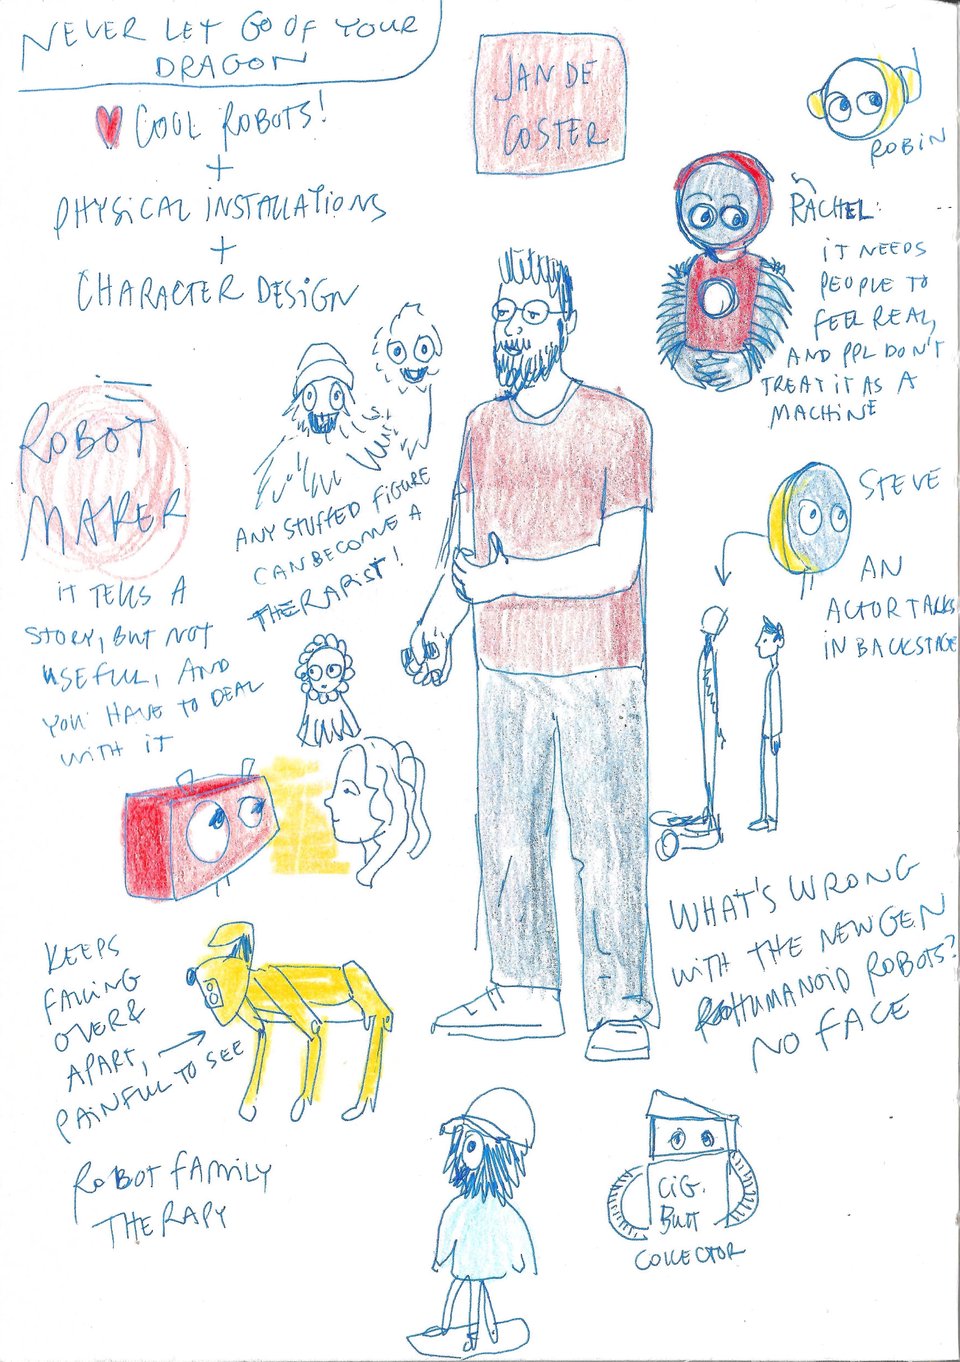 NEVER LET GO OF YOUR
DRAGON
COOL ROBOTS!
+
PHYSICAL INSTALLATIONS
+
CHARACTER DESIGN
JAN DE
COSTER
ROBIN
RACHEL:
IT NEEDS
PEOPLE TO
FEEL REAL,
AND PPL DON'T
TREAT IT AS A
MACHINE
ROBOT
MAKER
IT TELLS A
STORY, BUT NOT
USEFUL, AND
YOU HAVE TO DEAL
WITH IT
ANY STUFFED FIGURE
CAN BECOME A
THERAPIST!
STEVE
AN
ACTOR TALKS
IN BACKSTAGE
WHAT'S WRONG
WITH THE NEW GEN
HUMANOID ROBOTS?
NO FACE
KEEPS
FALLING
OVER &
APART,
PAINFUL TO SEE
ROBOT FAMILY
THERAPY
CIG.
BUTT
COLLECTOR